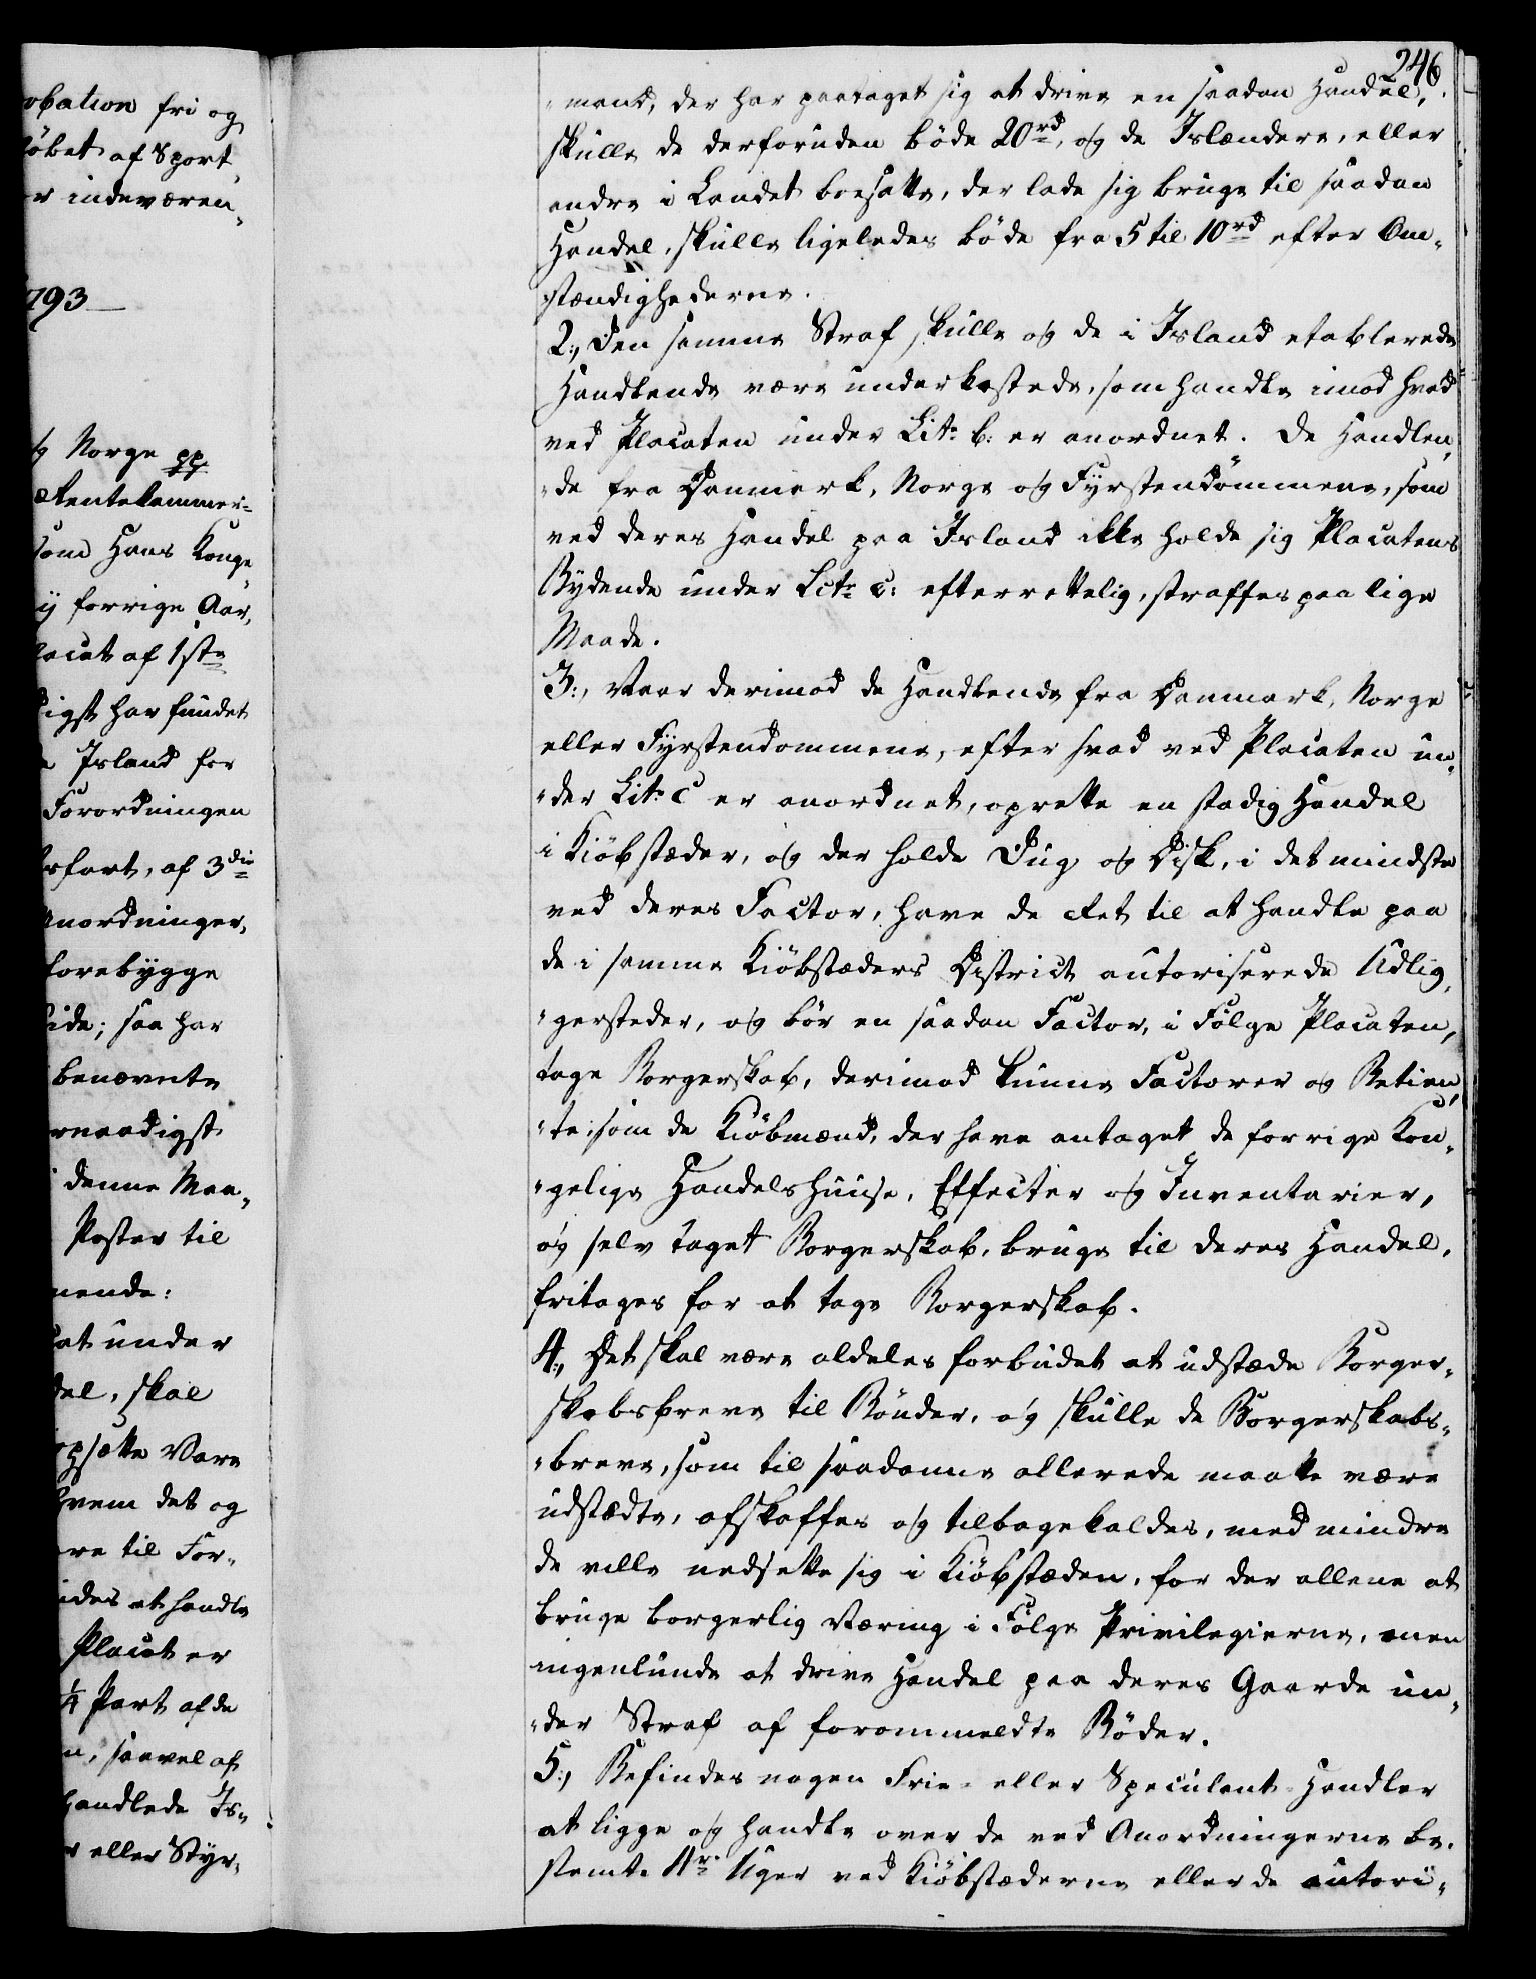 obation fri og
löbet af Sport,
r indeværen,
793
g Norge pp
Rentekammer=
som Hans Konge,
ij forrige Aar,
lacat af 1ste
digst har fundet
Island for
Forordningen
rsfart, af 3die
Anordninger,
forebygge
side; saa har
benævnte
rnaadigst
denne Maa,
Poster til
nende:
cat under
del, skal
opsætte Vare
hvem det og
re til For,
ides at handle
Placat er
1/4 Part af de
n, saavel af
handlede Is,
r eller Styr,
246
"mand, der har paataget sig at drive en saadan Handel,
skulle de derforuden böde 20rd, og de Islændere, eller
andre i Landet boesatte, der lade sig bruge til saadan
Handel, skulle ligeledes böde fra 5 til 10rd efter Om,
stændighederne.
2:, Den samme Straf skulle og de i Island etablerede
Handlende være underkastede, som handle imod hvad
ved Placaten under Litr. b: er anordnet. De Handlen,
"de fra Danmark, Norge og Fyrstendömmene, som
ved deres Handel paa Island ikke holde sig Placatens
Bydende under Litr. c: efterrettelig, straffes paa lige
Maade.
3:, Naar derimod de Handlende fra Danmark, Norge
eller Fyrstendommene, efter hvad ved Placaten un,
"der Litr. C er anordnet, oprette en stadig Handel
i Kiöbstæder, og der holde Dug og Disk, i det mindste
ved deres Factor, have de Ret til at handle paa
de i samme Kiöbstæders District autoriserede Udlig,
"gersteder, og bör en saadan Factor, i Fölge Placaten,
tage Borgerskab, derimod kunne Factorer og Betien,
"te, som de Kiöbmænd, der have antaget de forrige Kon,
"gelige Handelshuuse, Effecter og Inventarier,
og selv taget Borgerskab, bruge til deres Handel,
fritages for at tage Borgerskab.
4:, Det skal være aldeles forbudet at udstæde Borger,
skabsbreve til Bönder, og skulle de Borgerskabs,
"breve, som til saadanne allerede maatte være
udstædte, afskaffes og tilbagekaldes, med mindre
de ville nedsette sig i Kiöbstæden, for der allene at
bruge borgerlig Næring i Fölge Privilegierne, men
ingenlunde at drive Handel paa deres Gaarde un,
"der Straf af forommeldte Böder.
5:, Befindes nogen Frie- eller Speculant-Handler
at ligge og handle over de ved Anordningerne be,
stemte 4re Uger ved Kiöbstæderne eller de autori,